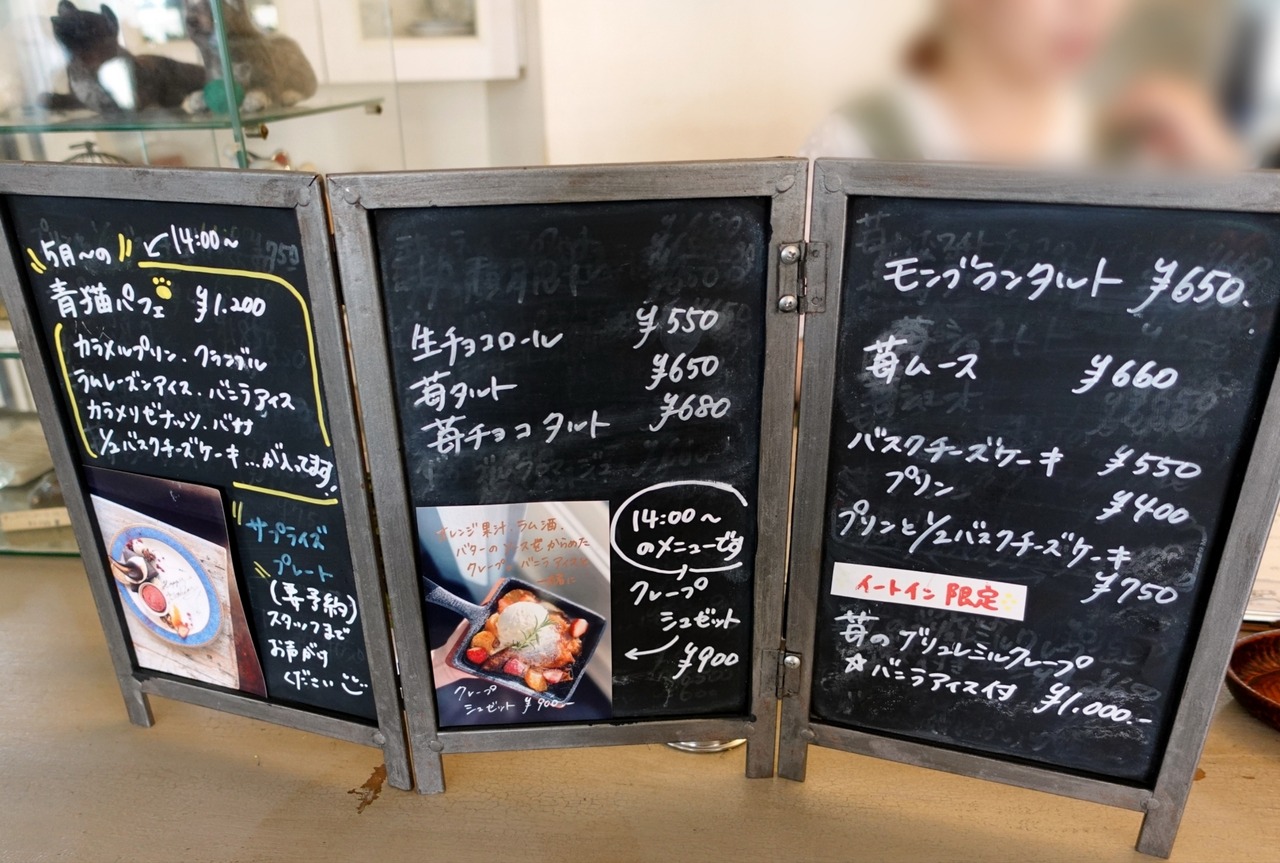 5月〜の
↙14:00〜
青猫パフェ ¥1.200
カラメルプリン、クランブル
ラムレーズンアイス、バニラアイス
カラメリゼナッツ、バナナ
1/2バスクチーズケーキ…が入ってます!
サプライズ
プレート
(要予約)
スタッフまで
お声がけ
ください
生チョコロール ¥550
苺タルト ¥650
苺チョコタルト ¥680
オレンジ果汁、ラム酒、
バターのソースをからめた
クレープ。バニラアイスと
一緒に
クレープ
シュゼット ¥900-
14:00〜
のメニューです
クレープ
シュゼット
← ¥900
モンブランタルト ¥650.
苺ムース ¥660
バスクチーズケーキ ¥550
プリン ¥400
プリンと1/2バスクチーズケーキ
¥750
イートイン限定
苺のブリュレミルクレープ
☆バニラアイス付 ¥1.000.-